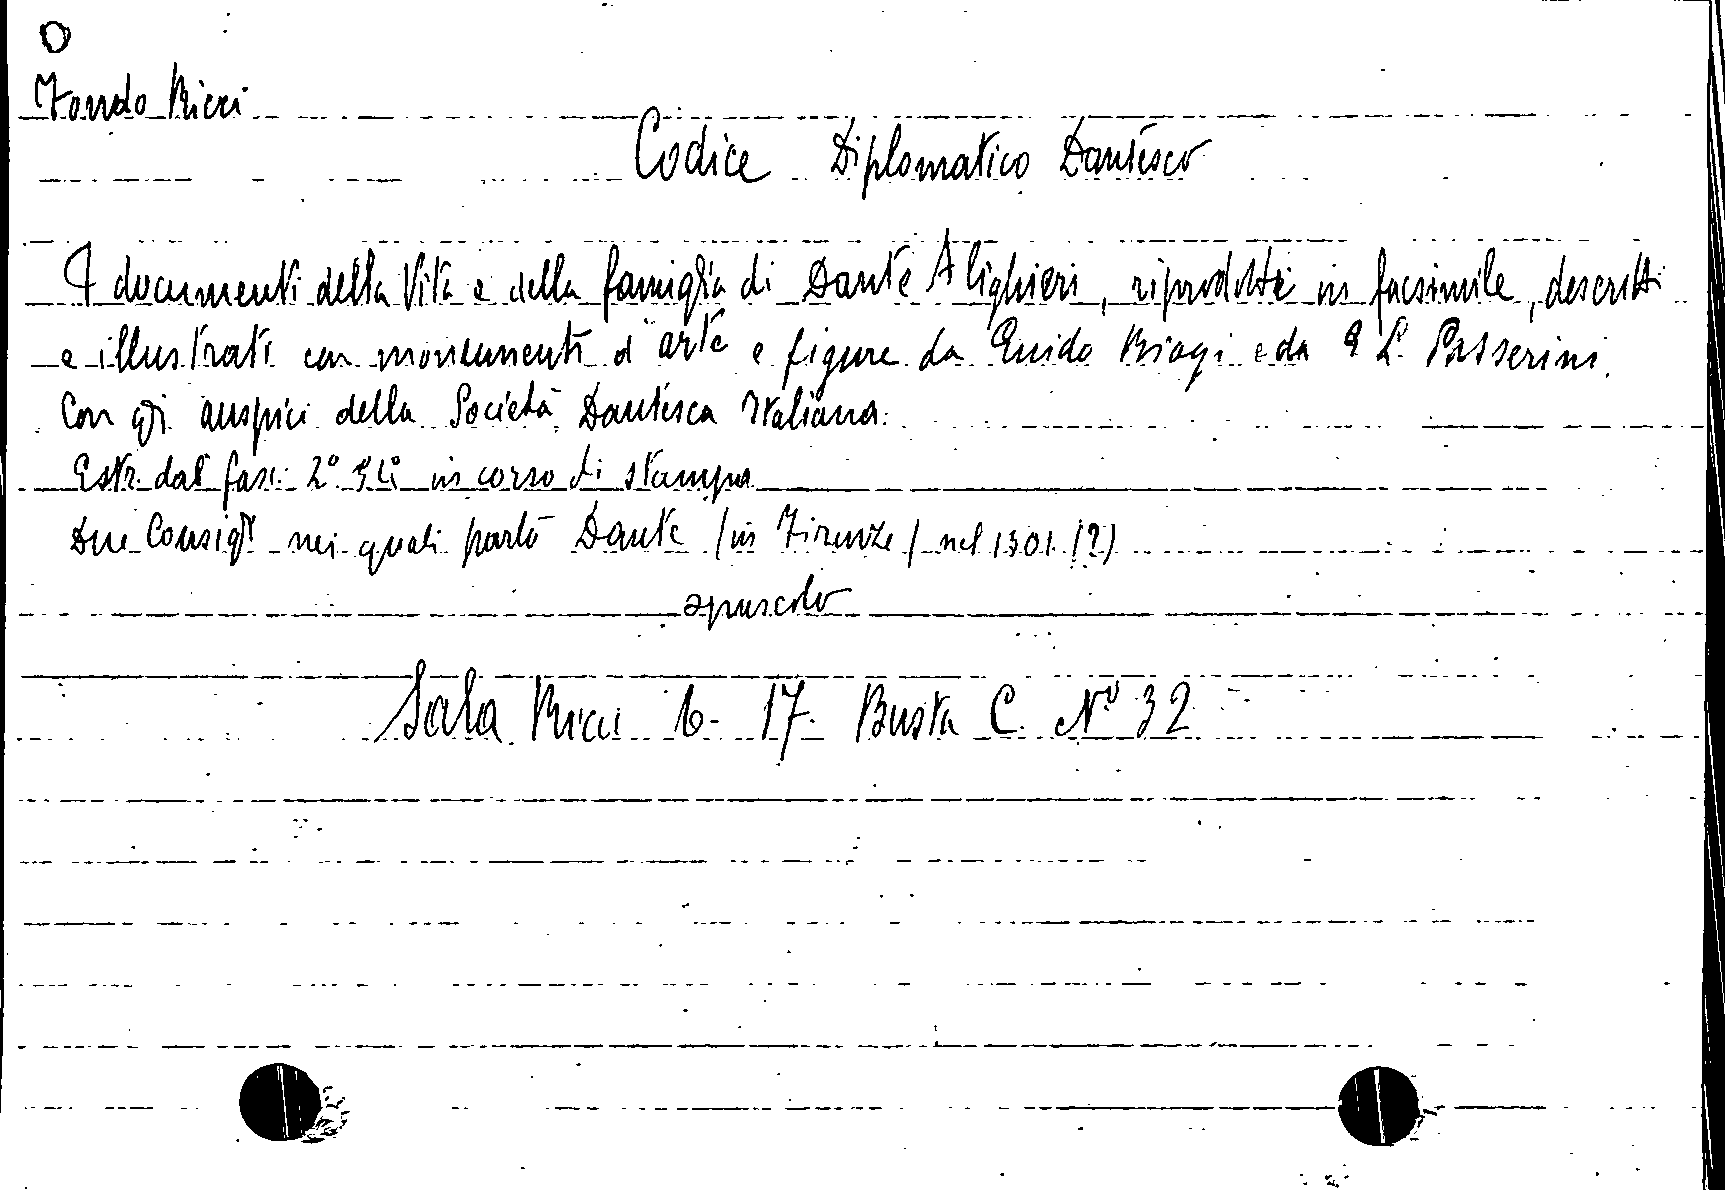 O
Fondo Ricci
Codice Diplomatico Dantesco
I documenti della Vita e della famiglia di Dante Alighieri, riprodotti in facsimile, descritti
e illustrati con monumenti d'arte e figure da Guido Biagi e da G L. Passerini.
Con gli auspici della Società Dantesca Italiana.
Estr. dal fasc. 2° in corso di stampa
Due Consigli nei quali parlò Dante (in Firenze) nel 1301 (?)
opuscolo
Sala Ricci 6- 17- Busta C. N° 32